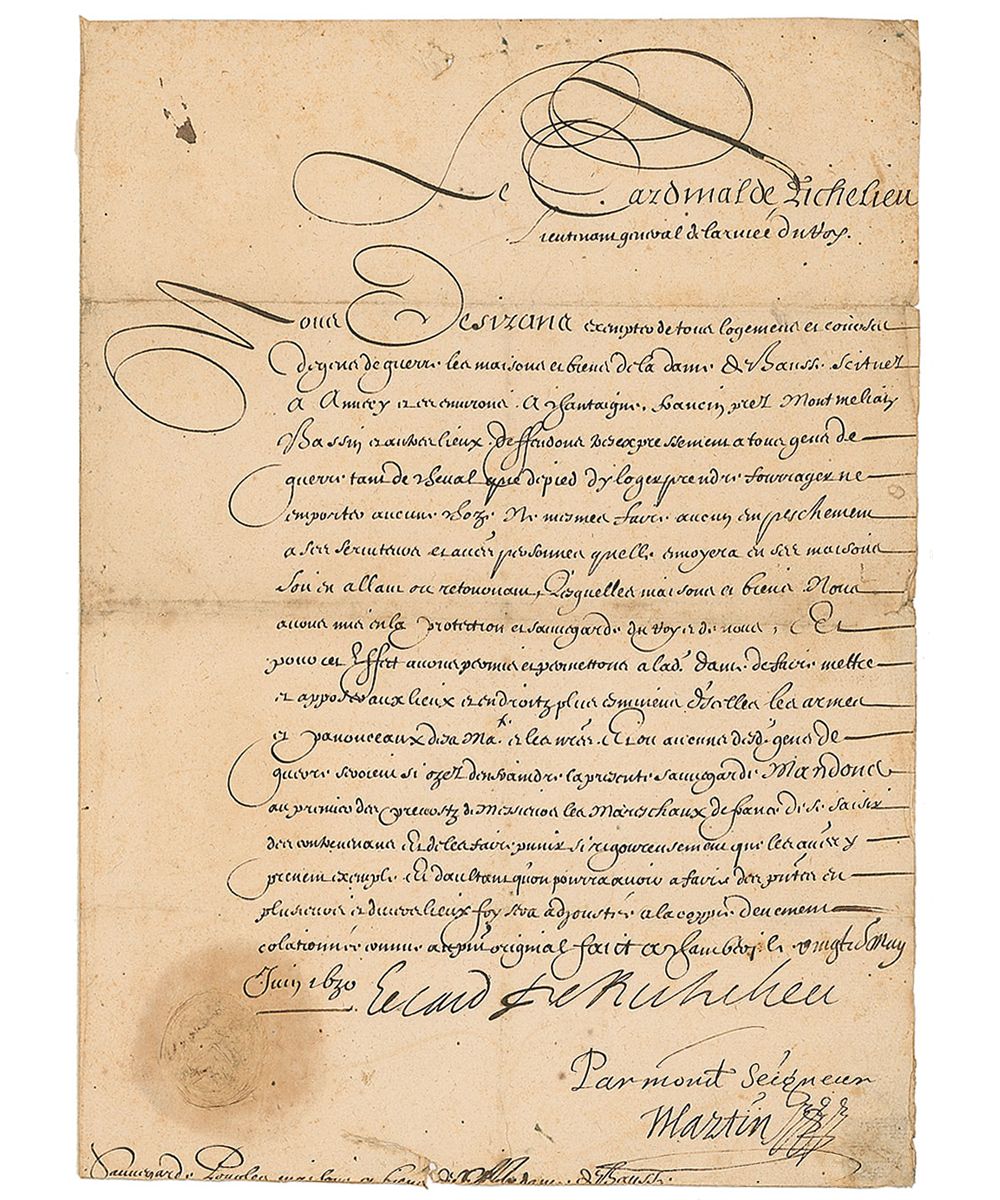 Le Cardinal de Richelieu
Lieutenant general de larmée du Roy.
Nous Desirans exempter de tous logemens et courses
de gens de guerre les maisons et biens de la dame de Bausse scituez
A Annecy et es environs. A Chantaigne, francin prez Montmelian
Bassin et autres lieux. Deffendons tres expressement a tous gens de
guerre tant de cheval que de pied dy loger prendre fourrager ne
emporter aucune choze Ne mesmes faire aucun empeschement
a ses serviteurs et autres personnes quelle envoyera en ses maisons
soit en allant ou retournant, Lesquelles maisons et biens Nous
avons mis en la protection et sauvegarde du Roy et de nous, Et
pour cet Effet avons permis et permettons a lad. dame de faire mettre
et apposer aux lieux et endroitz plus eminens d'icelles les armes
et panonceaux de sa Ma.té et les nres. Et ou aucuns desd. gens de
guerre seroient si ozez denfraindre la presente sauvegarde Mandons
au premier des prevostz de Messieurs les Mareschaux de france de se saisir
des contrevenans Et de les faire punir si rigoureusement que les autres y
prenent exemple Et daultant quon pourra avoir a faire des pntes en
plusieurs et divers lieux foy sera adjoustée a la coppie deuement
colationnée comme au pnt original fait a Chambery le vingt
Juin 1630 Le card de Richelieu
Par mondt Seigneur
Martin
Sauvegarde Pour les maisons et biens de Madame de Bausse